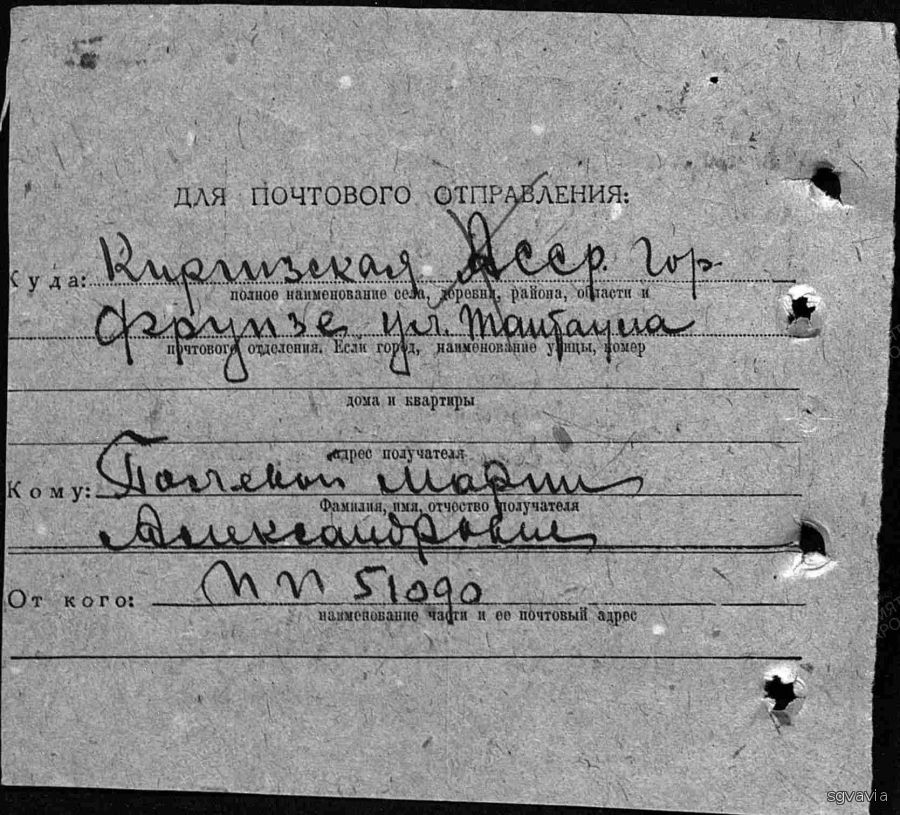 ДЛЯ ПОЧТОВОГО ОТПРАВЛЕНИЯ:
Куда: Киргизская АССР. гор
полное наименование села, деревни, района, области и
Фрунзе ул.
почтового отделения. Если город, наименование улицы, номер
дома и квартиры
адрес получателя
Кому: Марии
Фамилия, имя, отчество получателя
Александровне
От кого: ПП 51090
наименование части и ее почтовый адрес
sgvavia